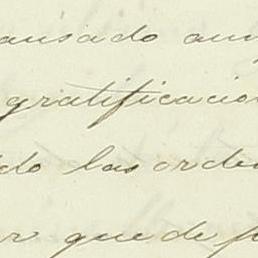 ausado am
gratificacion
do las orde
r que de p